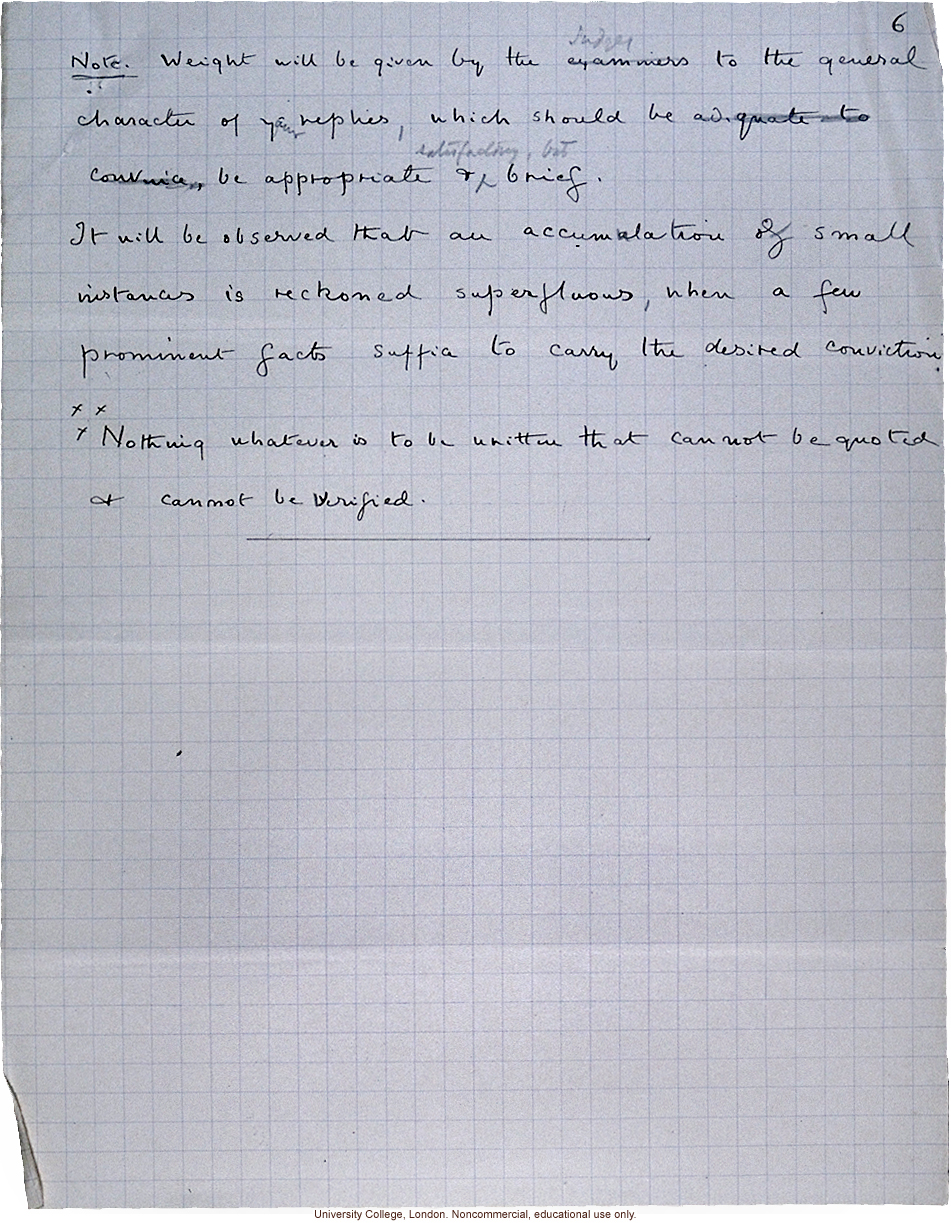 6
Judges
Note. Weight will be given by the examiners to the general
character of your replies, which should be adequate to
satisfactory, but
convince, be appropriate & brief.
It will be observed that an accumulation of small
instances is reckoned superfluous, when a few
prominent facts suffice to carry the desired conviction.
x x
x Nothing whatever is to be written that cannot be quoted
& cannot be verified.
University College, London. Noncommercial, educational use only.